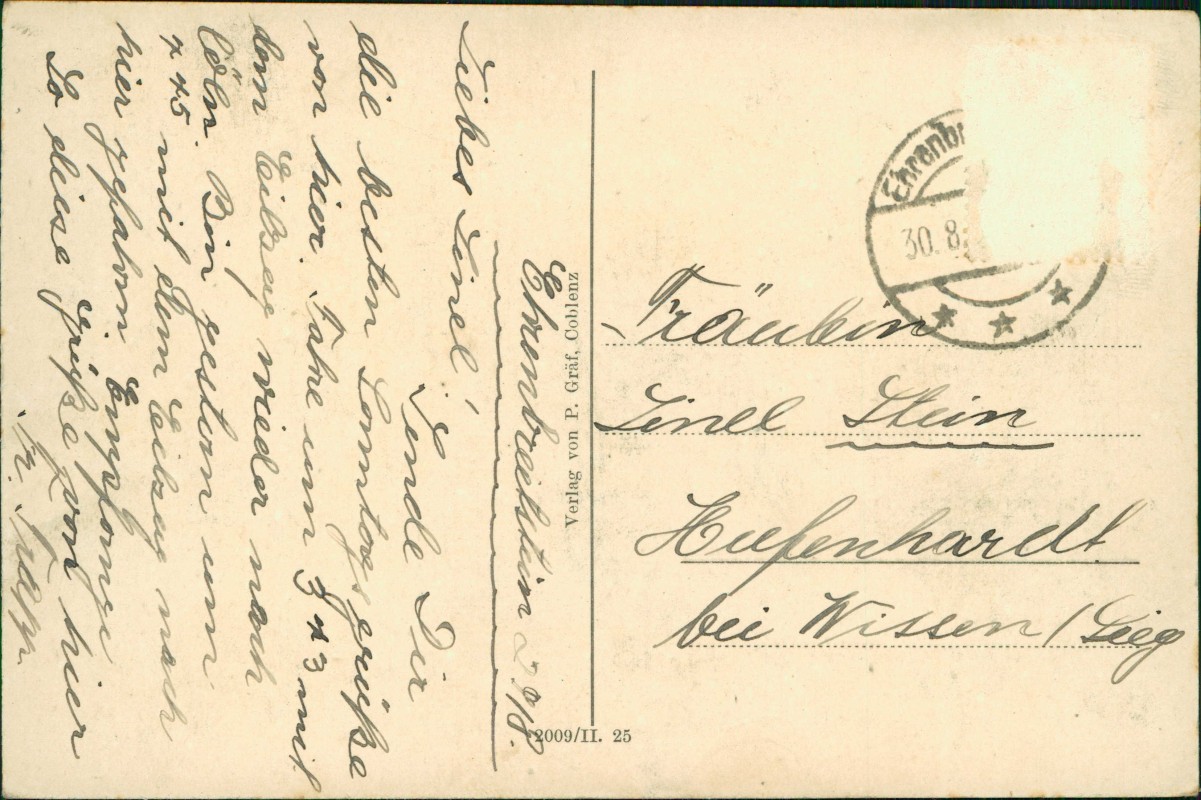 Ehrenbreitstein
Liebes Linel!
Sende Dir
die besten Sonntagsgrüße
von hier. Fahre um 3 43 mit
dem Eilzug wieder nach
Cöln. Bin gestern um
7 45 mit dem Eilzug nach
hier gefahrn
So diese Grüße von hier
Verlag von P. Gräf, Coblenz
2009/II. 25
Ehrenbr
30. 8.
Fräulein
Linel Stein
Hufenhardt
bei Wissen / Sieg